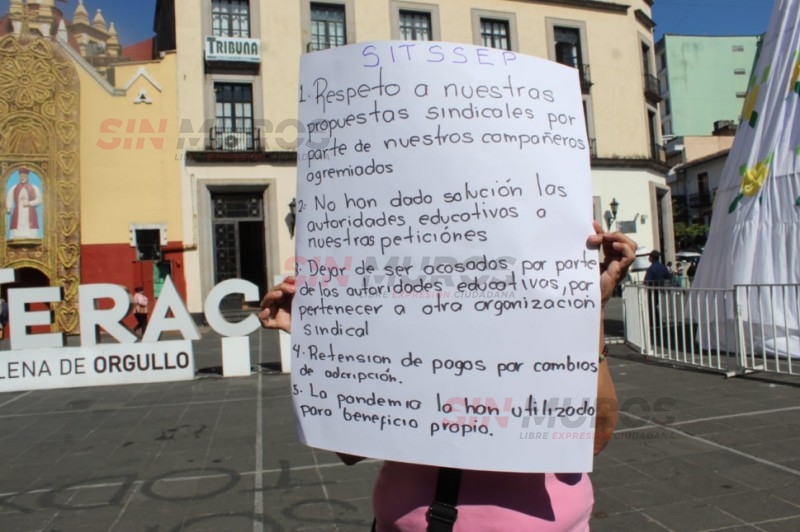 SITSSEP
1. Respeto a nuestras
propuestas sindicales por
parte de nuestros compañeros
agremiados
2- No han dado solución las
autoridades educativas a
nuestras peticiónes
3. Dejar de ser acosados por parte
de las autoridades educativas, por
pertenecer a otra organización
sindical
4. Retension de pagos por cambios
de adcripción.
5. La pandemia la han utilizado
para beneficio propio.
TRIBUNA
TERAC
LLENA DE ORGULLO
SIN MUROS
LIBRE EXPRESIÓN CIUDADANA
SIN MUROS
LIBRE EXPRESIÓN CIUDADANA
SIN MUROS
LIBRE EXPRESIÓN CIUDADANA